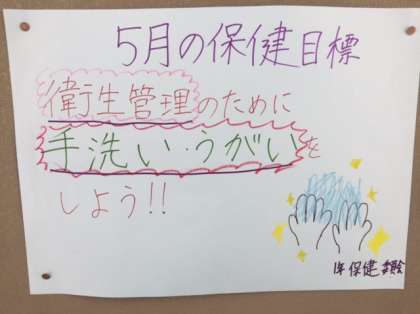 5月の保健目標
衛生管理のために
手洗い・うがいを
しよう!!
1年 保健委員会